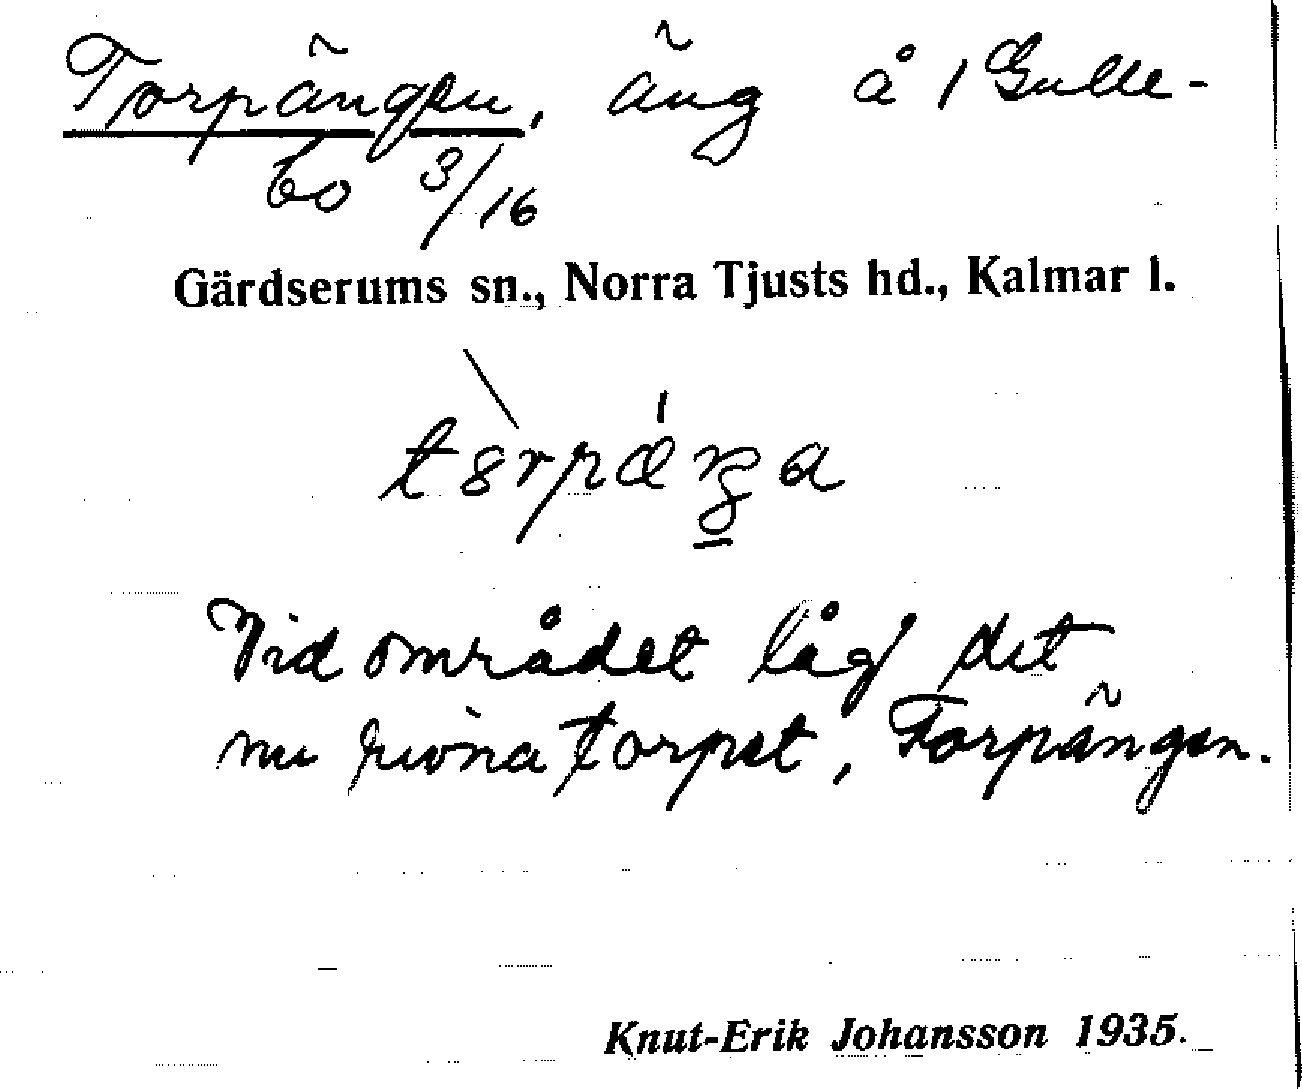 Torpängen, äng å 1 Gulle-
bo 3/16
Gärdserums sn., Norra Tjusts hd., Kalmar l.
Vid området låg det
nu rivna torpet, Torpängen.
Knut-Erik Johansson 1935.